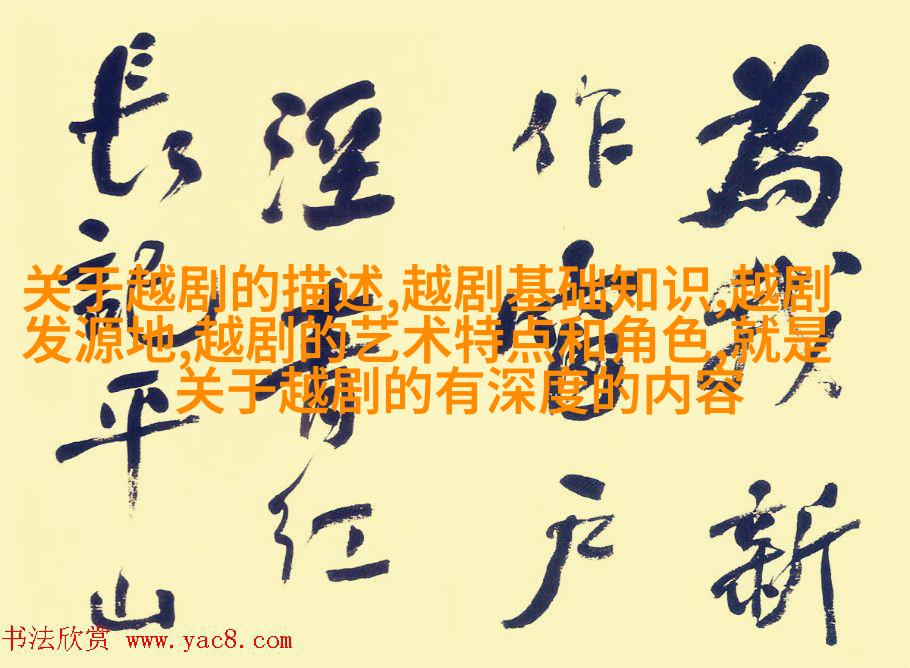 关于越剧的描述,越剧基础知识,越剧
发源地,越剧的艺术特点和角色,就是
关于越剧的有深度的内容
為我新
作户
青红
長記平山
书法欣赏 www.yac8.com